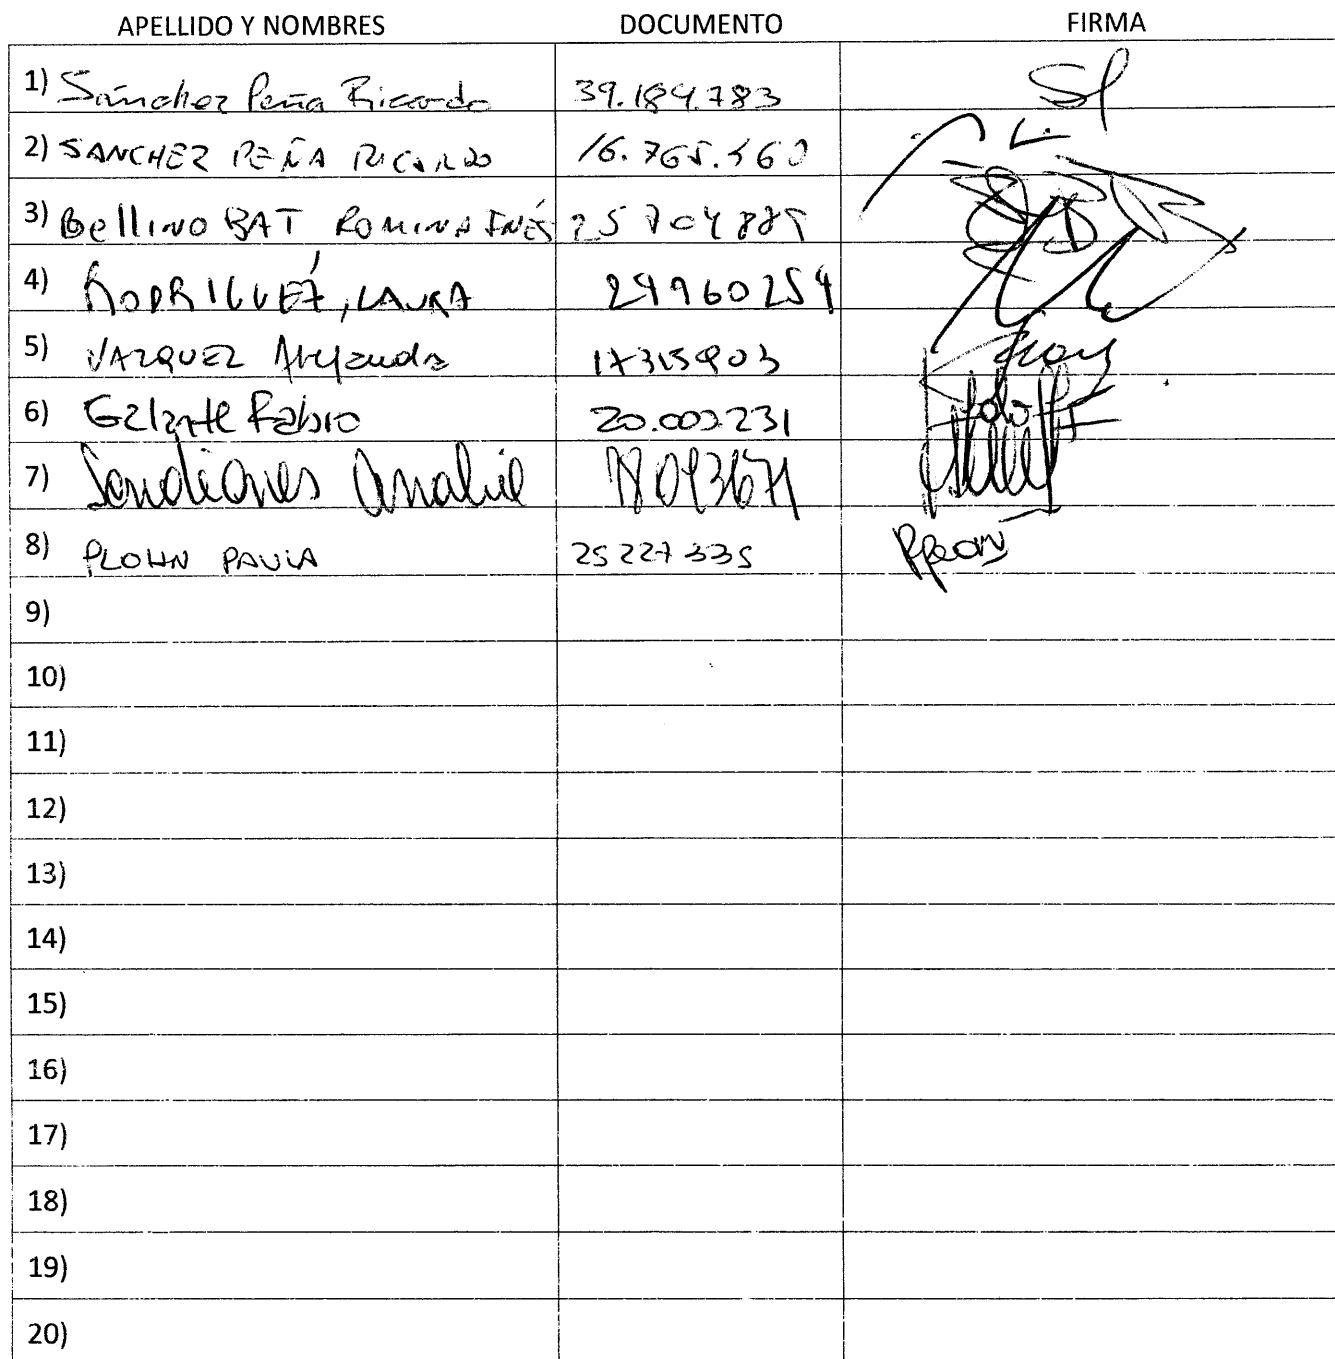 APELLIDO Y NOMBRES DOCUMENTO FIRMA
1) Sánchez Peña Ricardo 39.189.783
2) SANCHEZ PEÑA RICARDO 16.765.560
3) Bellino BAT ROMINA INÉS 25704885
4) RODRIGUEZ, LAURA 29960254
5) VAZQUEZ Alejandra 17315903
6) Galante Fabio 20.003.231
7) 18093671
8) PLOHN PAULA 25227335
9)
10)
11)
12)
13)
14)
15)
16)
17)
18)
19)
20)